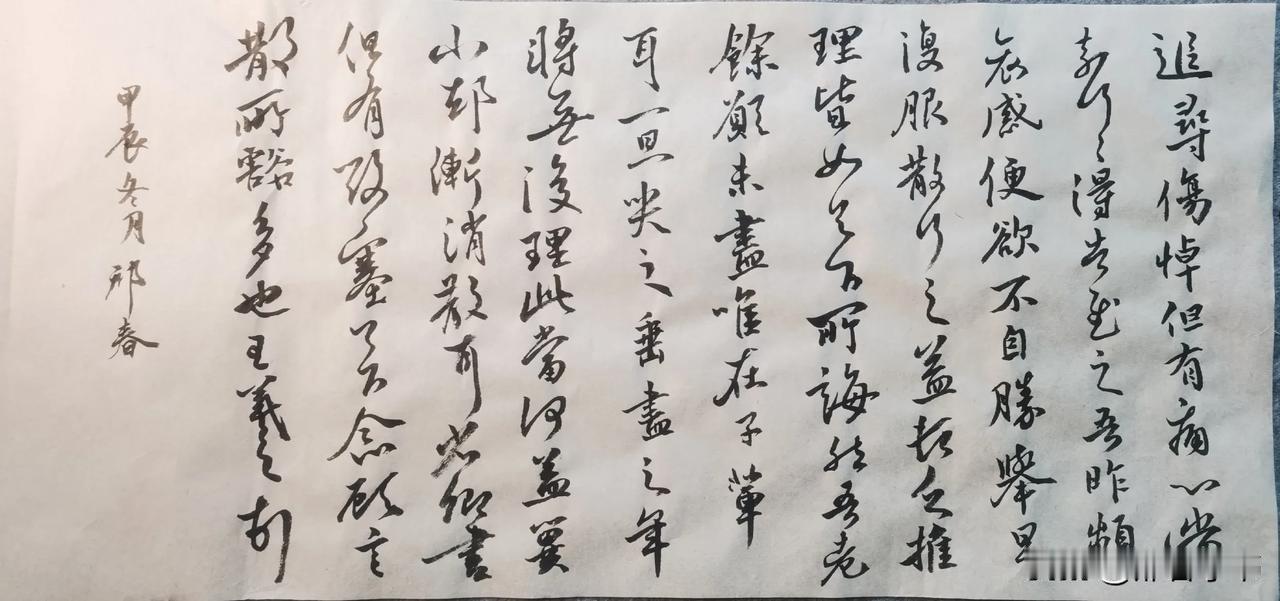 追尋傷悼但有痛心當
奈何々得告慰之吾昨頻
哀感便欲不自勝舉旦
復服散行之益頓乏推
理皆如足下所誨然吾老
餘願未盡唯在子輩
耳一旦哭之垂盡之年
將無復理此當何益冀
小却漸消散耳省卿書
但有酸塞足下念顧言
散所豁多也王羲之
甲辰冬月邢春